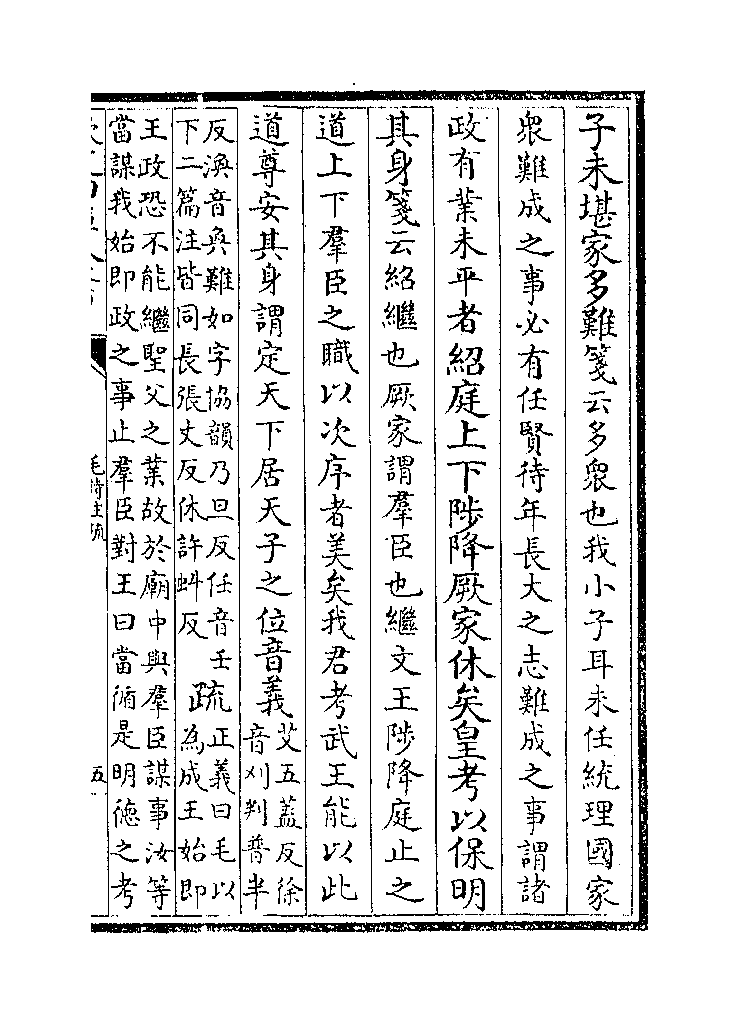 子未堪家多難箋云多衆也我小子耳未任統理國家
衆難成之事必有任賢待年長大之志難成之事謂諸
政有業未平者紹庭上下陟降厥家休矣皇考以保明
其身箋云紹繼也厥家謂羣臣也繼文王陟降庭止之
道上下羣臣之職以次序者美矣我君考武王能以此
道尊安其身謂定天下居天子之位音義
艾五蓋反徐
音刈判普半
反渙音奐難如字協韻乃旦反任音壬
下二篇注皆同長張丈反休許虯反
疏
正義曰毛以
為成王始即
王政恐不能繼聖父之業故於廟中與羣臣謀事汝等
當謀我始即政之事止羣臣對王曰當循是明德之考
毛詩注疏
五